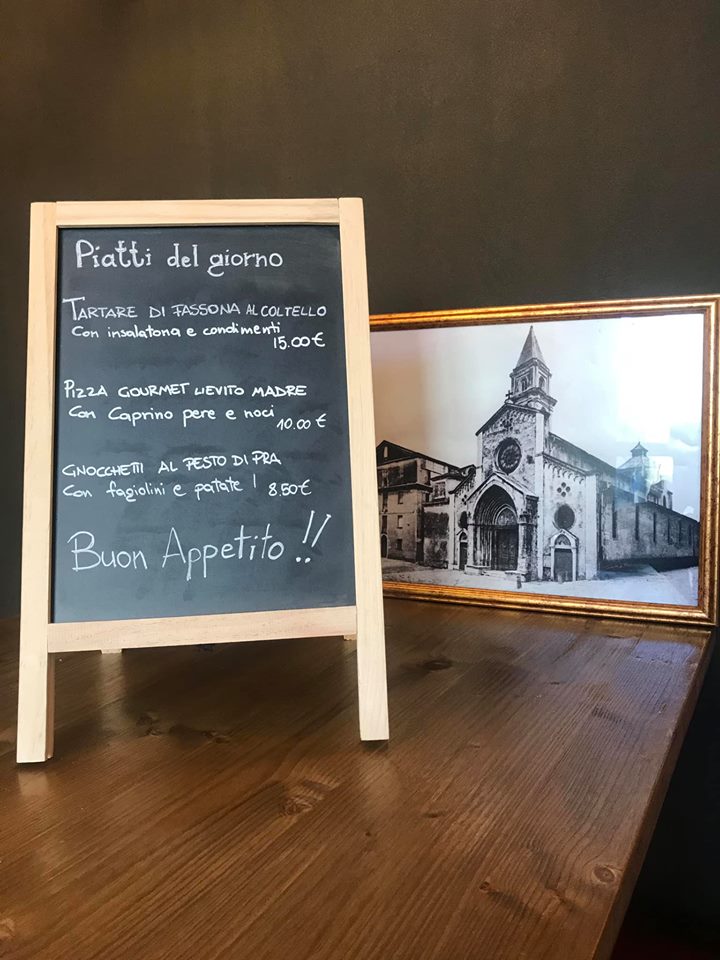 Piatti del giorno
TARTARE DI FASSONA AL COLTELLO
Con insalatona e condimenti
15.00 €
PIZZA GOURMET LIEVITO MADRE
Con Caprino pere e noci
10.00 €
GNOCCHETTI AL PESTO DI PRA
Con fagiolini e patate ! 8.50 €
Buon Appetito !!